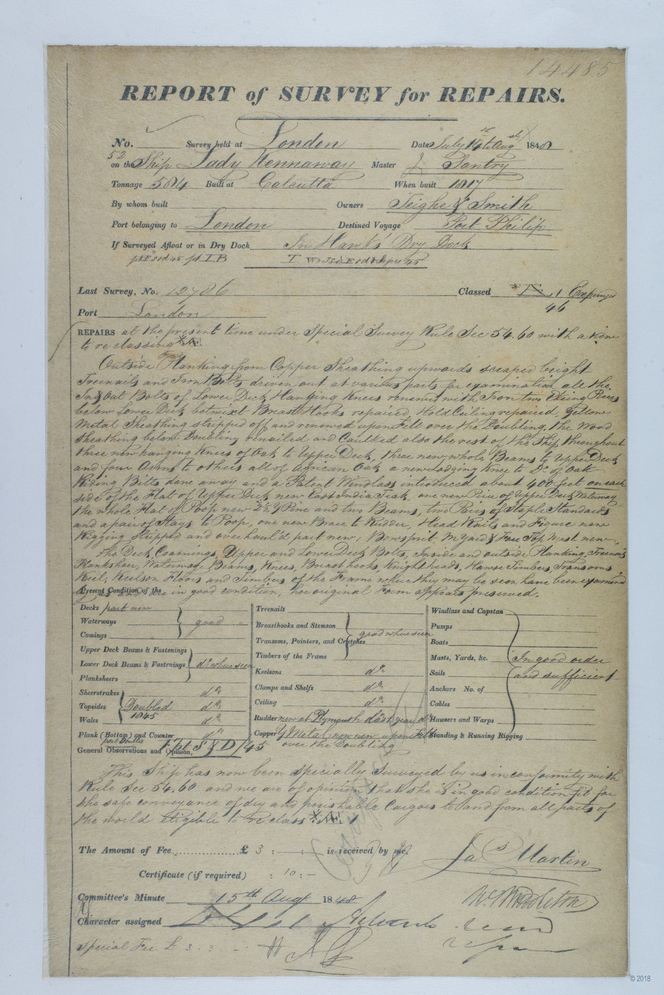 14485
REPORT of SURVEY for REPAIRS.
No. Survey held at London Date July 14th Augt 1848
52 on the Ship Lady Kennaway Master J. Santry
Tonnage 584 Built at Calcutta When built 1817
By whom built Owners Teighe & Smith
Port belonging to London Destined Voyage Port Philip
If Surveyed Afloat or in Dry Dock In Hawks' Dry Dock
Last Survey, No. 12786 Classed
46
Port London
REPAIRS at the present time under Special Survey Rule Sec 54.60 with a view
to re classing
Outside Planking from Copper Sheathing upwards scraped bright
Treenails and Iron Bolts driven out at various parts for examination all the
In & Out Bolts of Lower Deck Hanging Knees renewed with Iron two Ekeing Pieces
below Lower Deck betwixt Breast Hooks repaired, Hold Ceiling repaired, Yellow
Metal Sheathing stripped off and renewed upon Felt over the Doubling, the Wood
Sheathing below Doubling renailed and Caulked also the rest of the Ship throughout
three new hanging Knees of Oak to Upper Deck, three new whole Beams to Upper Deck
and four Arms to others all of African Oak, a new lodging Knee to Do of Oak
Riding Bitts done away and a Patent Windlass introduced about 400 feet on each
side of the Flat of Upper Deck new East India Teak, one new Piece of Upper Deck Waterway
the whole Flat of Poop new Pine and two Beams, two Pairs of Staple Standards
and a pair of Stays to Poop, one new Brace to Rudder, Head Rails and Figure new
Rigging Stripped and overhauld part new, Bowsprit M yard & Fore Top Mast new
The Deck, Coamings, Upper and Lower Deck Bolts, Inside and outside Planking, Treenails
Plankshear, Waterways, Beams, Knees, Breasthooks, Knightheads, Hawse Timbers, Transoms
Keel, Keelson Floors and Timbers of the Frame where they may be seen have been examined
Present Condition of the in good condition, her original Form appears preserved.
Decks part new
Waterways
Comings
good
Upper Deck Beams & Fastenings
Lower Deck Beams & Fastenings
Do where seen
Plansheers
Sheerstrakes do
Topsides Doubled do
Wales 1845 do
Plank (Bottom) and Counter do
Treenails
Breasthooks and Stemson
Transoms, Pointers, and Crutches
Timbers of the Frame
good where seen
Keelsons do
Clamps and Shelfs do
Ceiling do
Rudder new at Plymouth last year do
Copper Y Metal now new upon Felt
over the doubling
Windlass and Capstan
Pumps
Boats
Masts, Yards, &c.
Sails
Anchors No. of
Cables
Hawsers and Warps
Standing & Running Rigging
In good order
and sufficient
General Observations and Opinion,
This Ship has now been specially Surveyed by us in conformity with
Rule Sec 54.60 and we are of opinion that she is in good condition fit for
the safe conveyance of dry and perishable Cargoes to and from all parts of
the world Eligible to be class
The Amount of Fee £ 3 : - : - is received by me,
Jas Martin
Certificate (if required) : 10 : -
Wm Middleton
Committee's Minute 15th Augt 1848
Character assigned
Special Fee £ 3 : 3 : -
© 2018